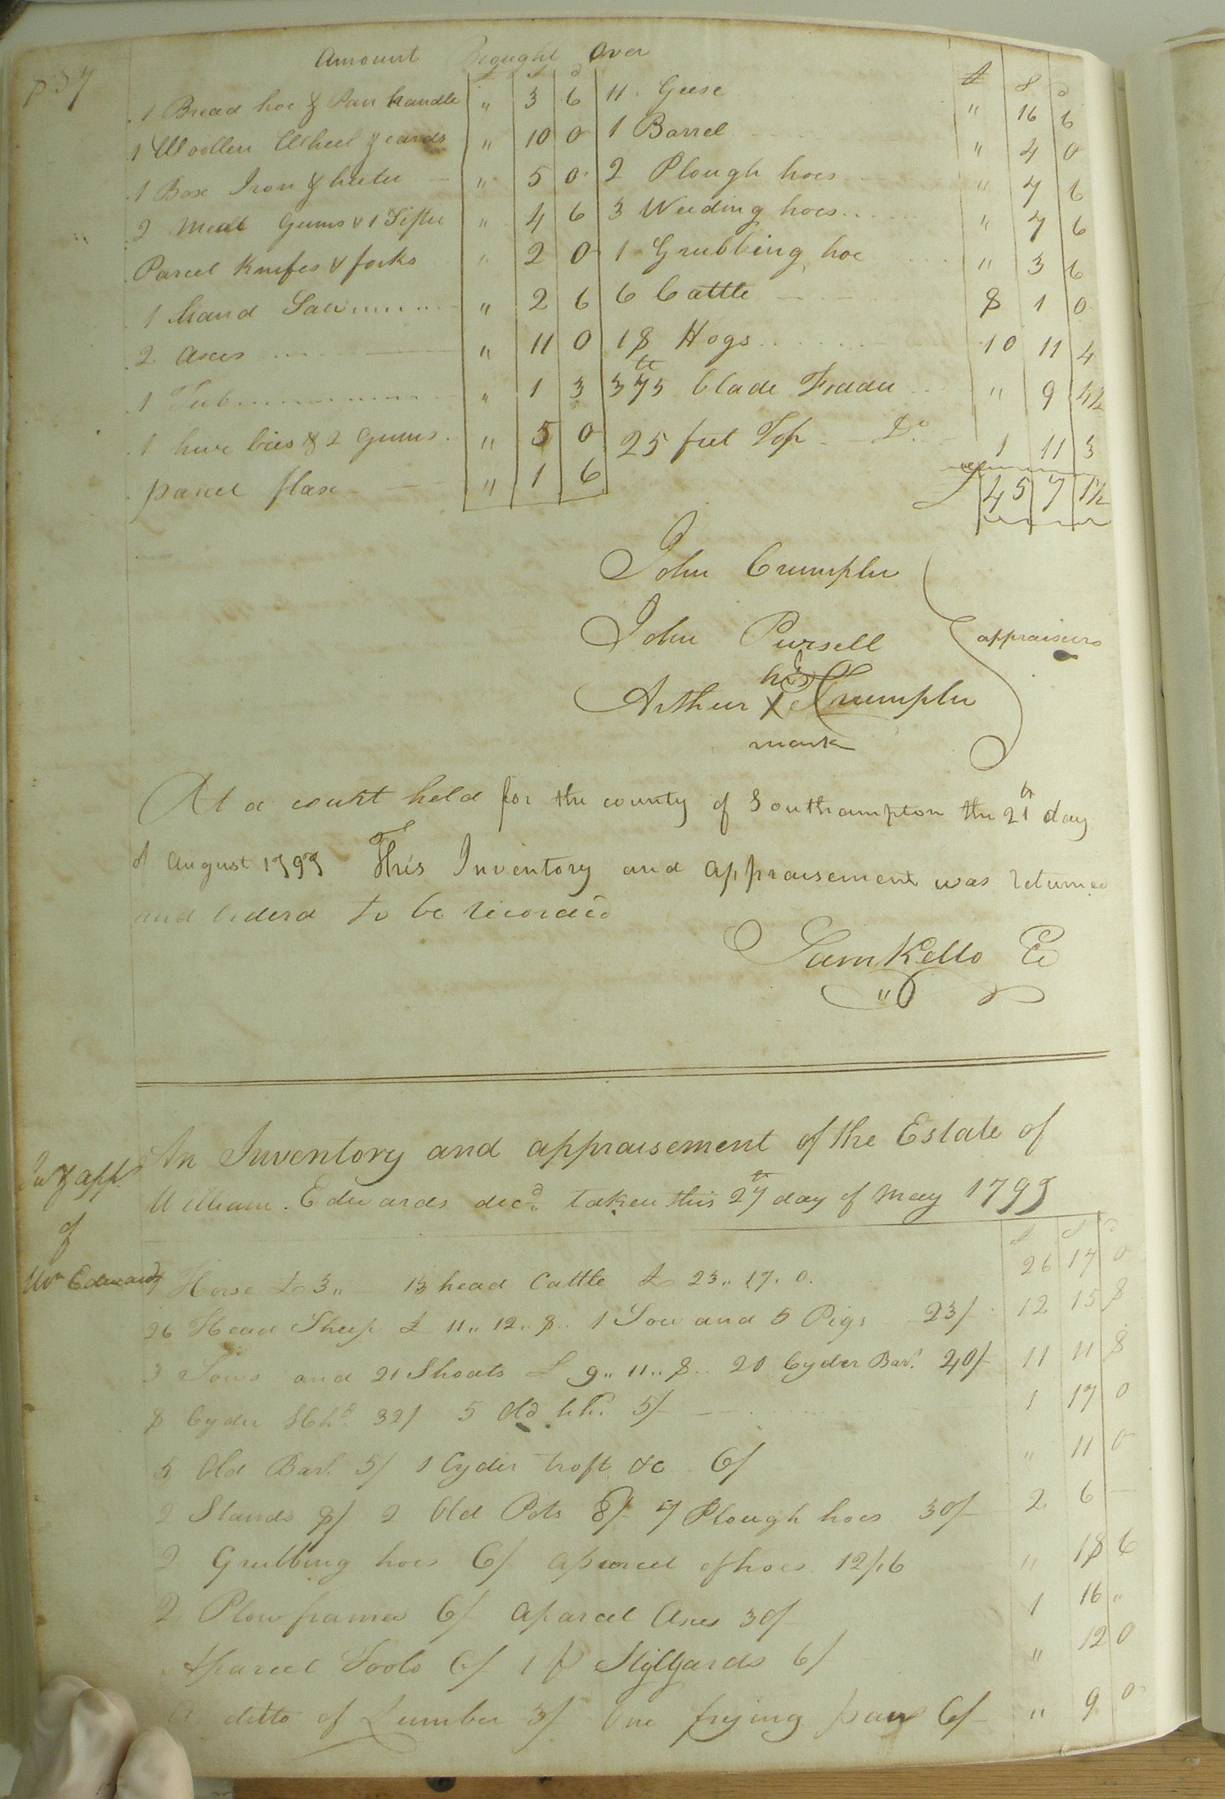 Amount Brought Over
£ s d £ s d
1 Bread hoe & Pan handle " 3 6 11 Geese " 16 6
1 Woollen Wheel & cards " 10 0 1 Barrel " 4 0
1 Box Iron & heter " 5 0 2 Plough hoes " 7 6
2 Meal Gums & 1 Sifter " 4 6 3 Weeding hoes " 7 6
Parcel Knifes & forks " 2 0 1 Grubbing hoe " 3 6
1 hand Saw " 2 6 6 Cattle 8 1 0
2 axes " 11 0 18 Hogs 10 11 4
1 Tub " 1 3 375 lb blade Fodder " 9 4½
1 hive bees & 2 Gums " 5 0 25 feet Top Do 1 11 3
parcel flax " 1 6 £ 45 7 1½
John Crumpler
John Pursell appraisers
Arthur his X mark Crumpler
At a court held for the county of Southampton the 21th day
of August 1799 This Inventory and appraisement was returned
and orderd to be recorded
Sam Kello Cc
An Inventory and appraisement of the Estate of
William Edwards decd taken this 27th day of May 1799
Inv & appt
of
Wm Edwards
£ s d
Horse £ 3 " 13 head Cattle £ 23 " 17 . 0 . 26 17 0
26 Head Sheep £ 11 " 12 " 8 1 Sow and 5 Pigs 23/ 12 15 8
3 Sows and 21 Shoats £ 9 " 11 " 8 20 Cyder Barl. 40/ 11 11 8
8 Cyder Hhd 32/ 5 Old hh. 5/ 1 17 0
5 Old Barl. 5/ 1 Cyder troft &c 6/ " 11 0
2 Stands 8/ 2 Old Pots 8/ 7 Plough hoes 30/ 2 6 —
2 Grubbing hoes 6/ a parcel of hoes 12/6 " 18 6
2 Plow frames 6/ a parcel Axes 30/ 1 16 "
A parcel Tools 6/ 1 p Stillyards 6/ " 12 0
A ditto of Lumber 3/ One frying pan 6/ " 9 0